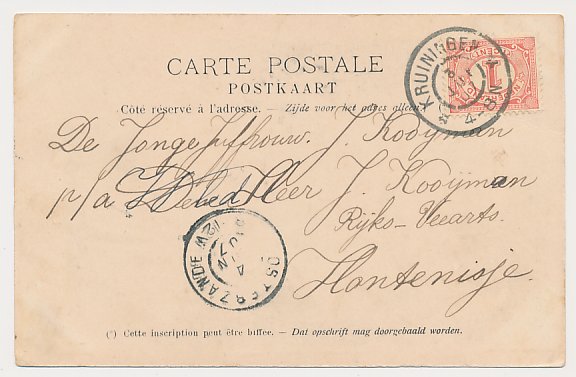 CARTE POSTALE
POSTKAART
Côté réservé à l'adresse. — Zijde voor het adres alleen.
De Jonge Juffrouw. J. Kooijman
p/a Heer J. Kooijman
Rijks-Veearts.
Hontenisse.
KRUININGEN
4-8N
1
OSTERZANDE
(*) Cette inscription peut être biffée. — Dat opschrift mag doorgehaald worden.